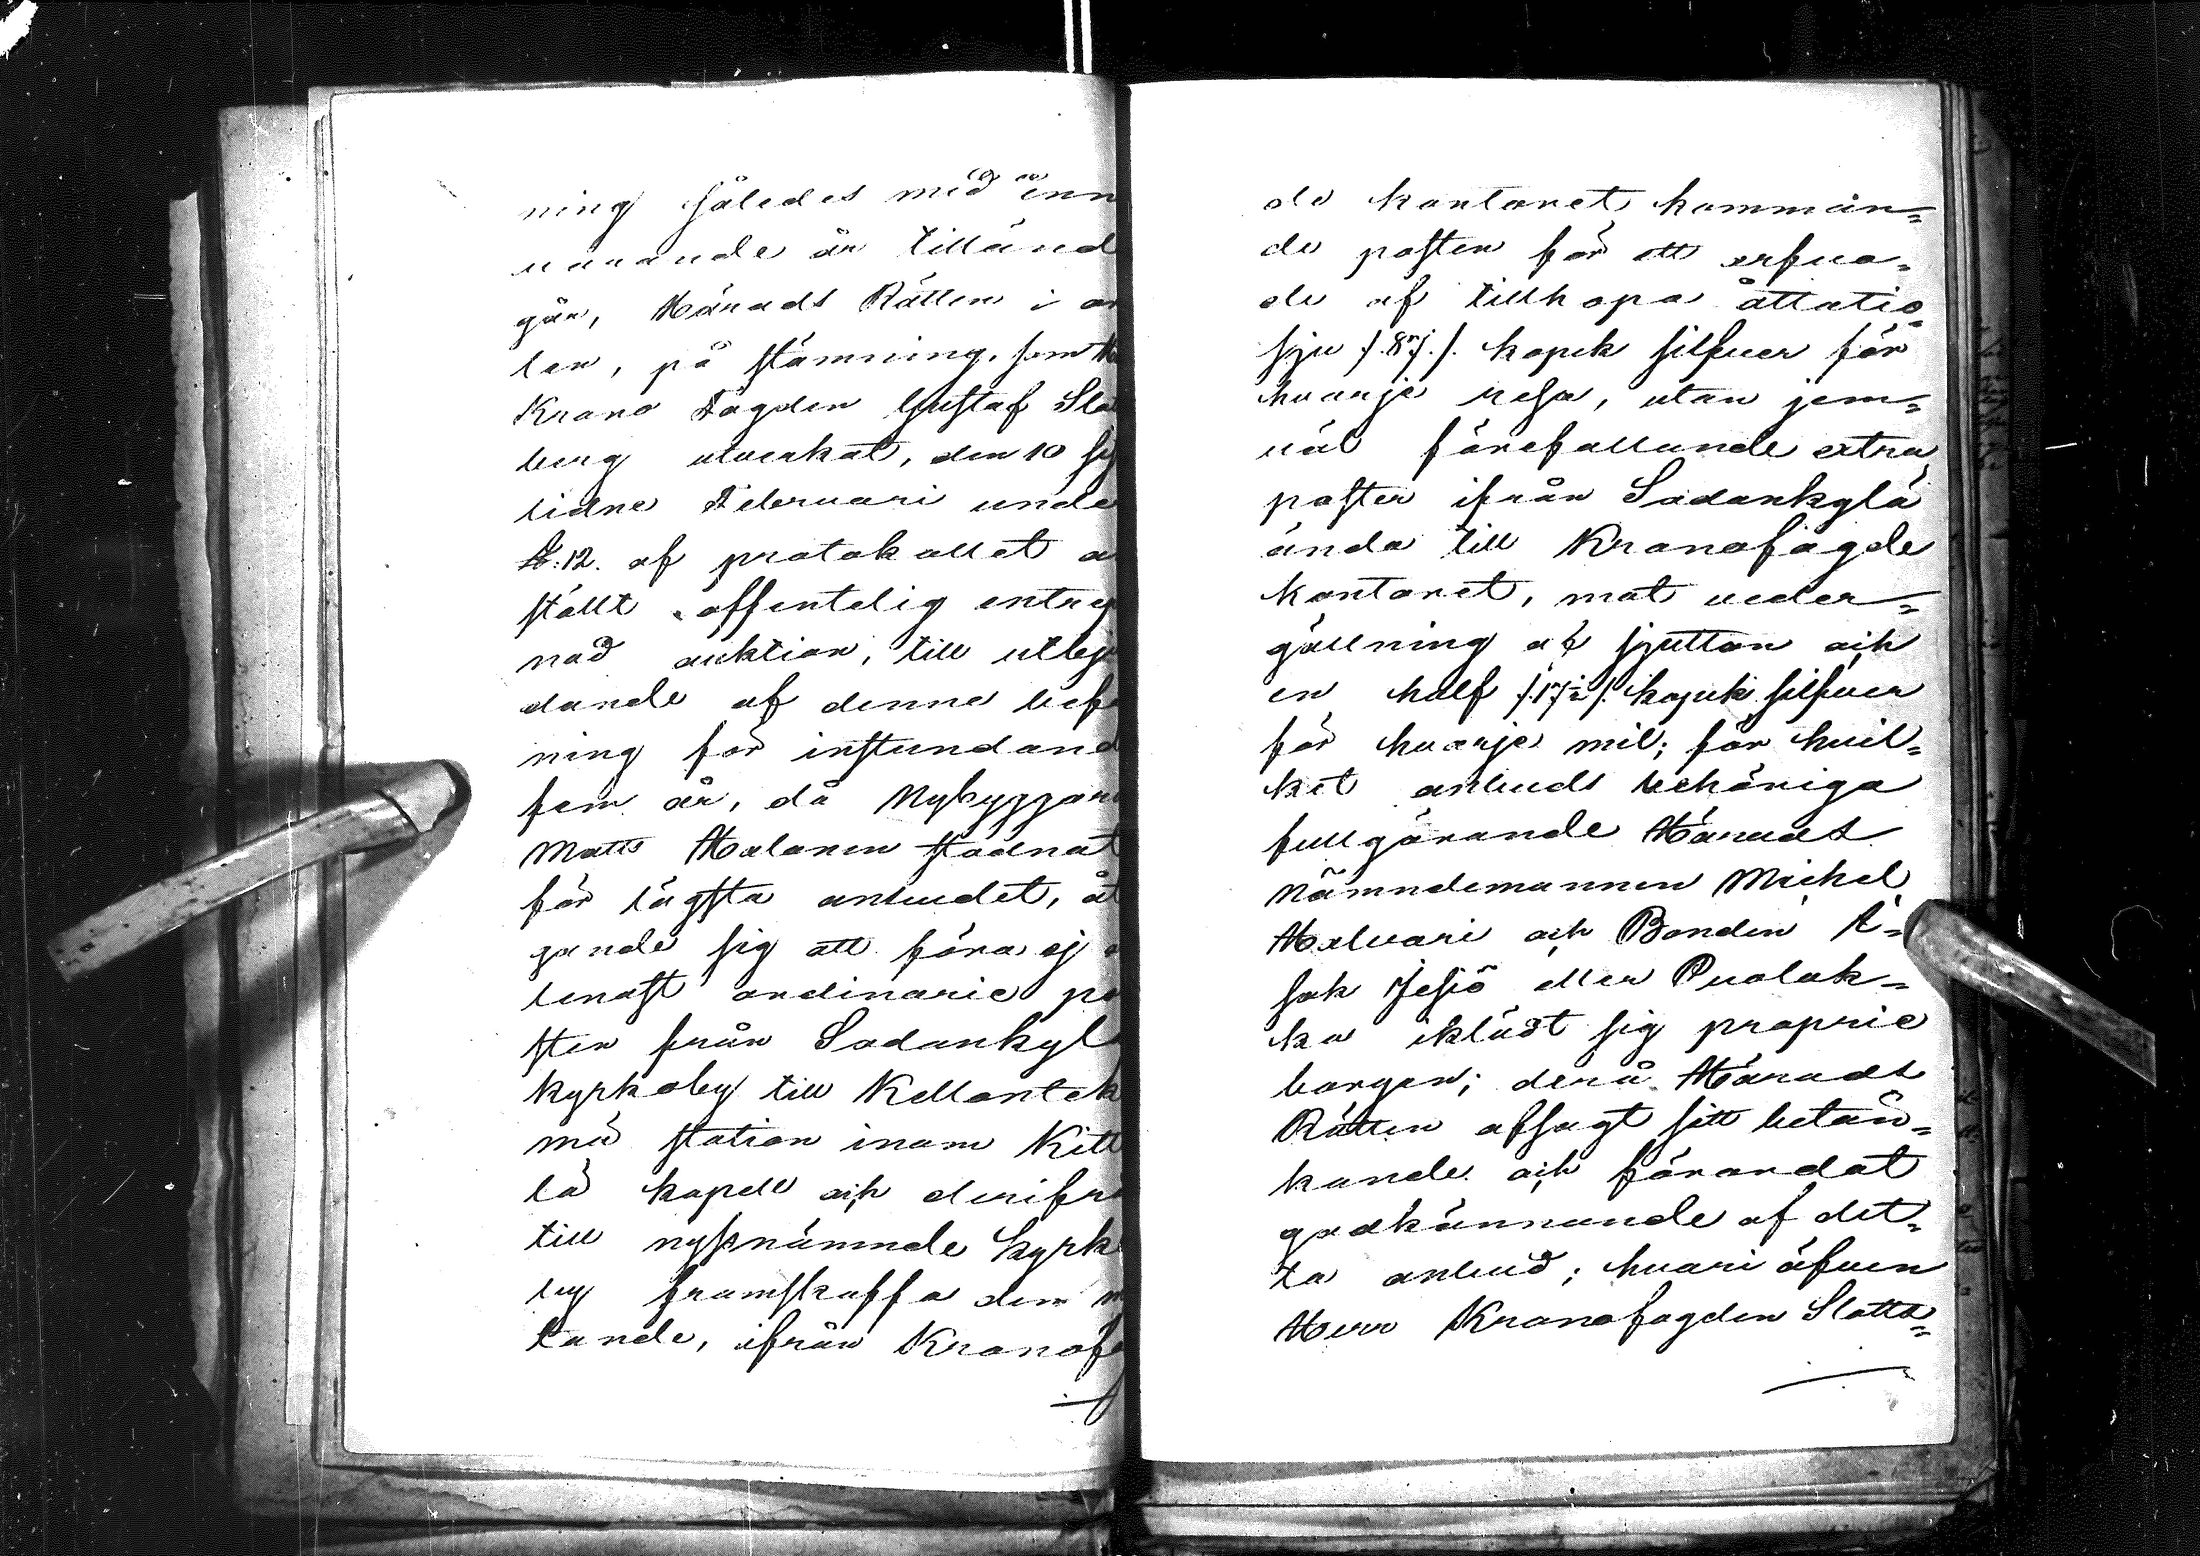 ning således med inn
uarande år tilländ
går, Härads Rätten i
ten, på stämning, som
Krono Fogden Gustaf Sla
berg utverkat, den 10
lidne Februari unde
§. 12. af protokollet a
ställt offentelig entrep
nad auktion, till utbju
dande af denna bef
ning för instundand
fem år, då Nybyggare
Matts Halonen stadnat
för lägsta anbudet, åt
gande sig att föra ej
lenast ordinarie po
sten från Sodankyl
kyrkoby till Kellontek
mä station inom Kitt
lä kapell och derifr
till nyssnämnde kyrk
by framskaffa dem m
tande, ifrån Kronof
de kontoret komman=
de posten för ett arfvo=
de af tillhopa åttatio=
sju /. 87 ./. kopek silfver för
hvarje resa, utan jem=
väl förefallande extra
poster ifrån Sodankylä
ända till Kronofogde
kontoret, mot veder=
gällning af sjutton och
en half /. 17½ /. kopek silfver
för hvarje mil; för hvil=
ket anbuds behöriga
fullgörande Härads
Nämndemannen Michel
Halvari och Bonden I=
sak Jesiö eller Puolak=
ka iklädt sig proprie
borgen; derå Härads
Rätten afsagt sitt betän=
kande och förordat
godkännande af det=
ta anbud; hvari äfven
Herr Kronofogden Slotts=